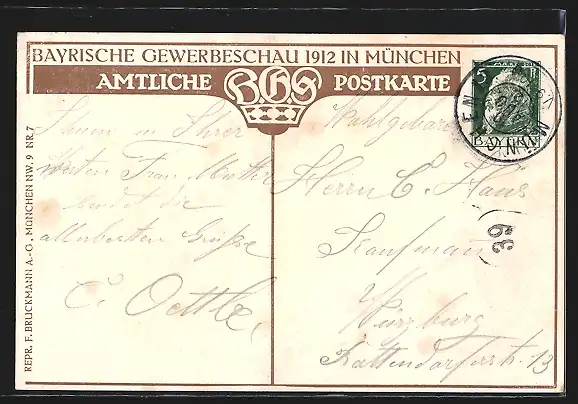 BAYRISCHE GEWERBESCHAU 1912 IN MÜNCHEN
AMTLICHE B.G.S POSTKARTE
5
BAYERN
MÜNCHEN
Ihnen u Ihrer
werten Frau Mutter
sendet die
allerbesten Grüße
C. Oettle,
Wohlgeboren
Herrn C. Haus
Kaufmann
Würzburg
Rottendorferstr. 13
39
REPR. F. BRUCKMANN A.-G., MÜNCHEN NW. 9 NR. 7